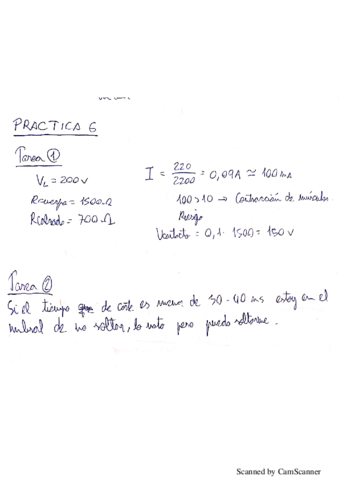 PRACTICA 6
Tarea ①
VL = 200 V
Rcuerpo = 1500 Ω
Rcalzado = 700 Ω
I = 220/2200 = 0,09A ≃ 100 mA
100 > 10 → Contracción de músculos
Riesgo
Vcontacto = 0,1 · 1500 = 150 V
Tarea ②
Si el tiempo de corte es menor de 30-40 ms estoy en el
umbral de no soltar, lo noto pero puedo soltarme.
Scanned by CamScanner